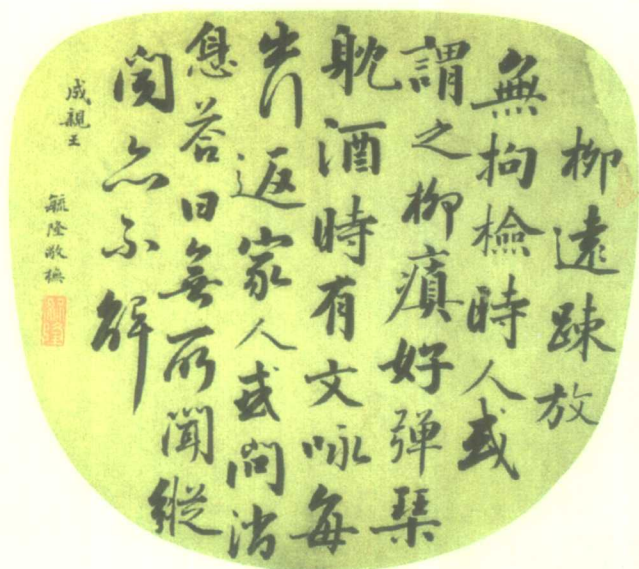 柳遠踈放
無拘檢時人或
謂之柳癲好彈琹
耽酒時有文咏每
出行返家人或問消
息答曰無所聞縱
聞亦不解
成親王
毓隆敬橅